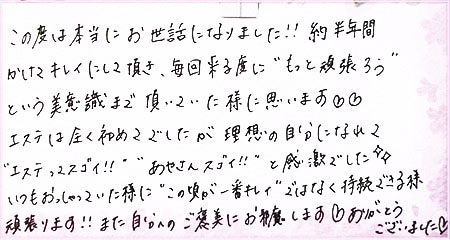 この度は本当にお世話になりました!! 約半年間
かけてキレイにして頂き、毎回来る度に"もっと頑張ろう"
という美意識まで頂いていた様に思います♡♡
エステは全く初めてでしたが理想の自分になれて
"エステってスゴイ!!""あやさんスゴイ!!"と感激でした✨
いつもおっしゃっていた様に"この頃が一番キレイ"ではなく持続できる様
頑張ります!!また自分へのご褒美にお邪魔します♡ありがとう
ございました♡